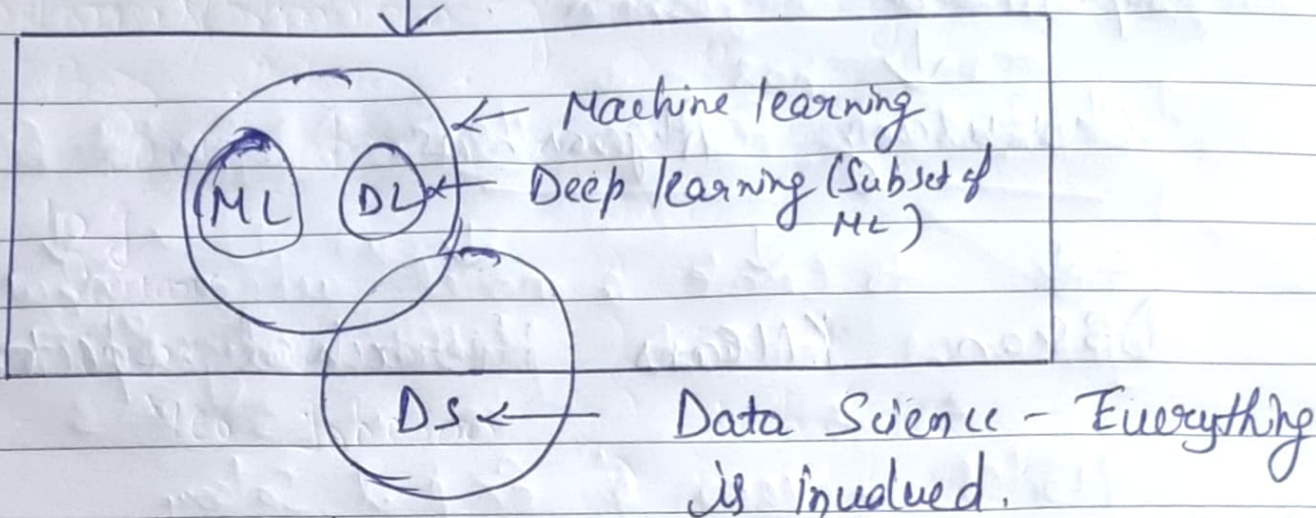 Machine learning
ML DL Deep learning (Subset of
ML)
DS Data Science - Everything
is involved.